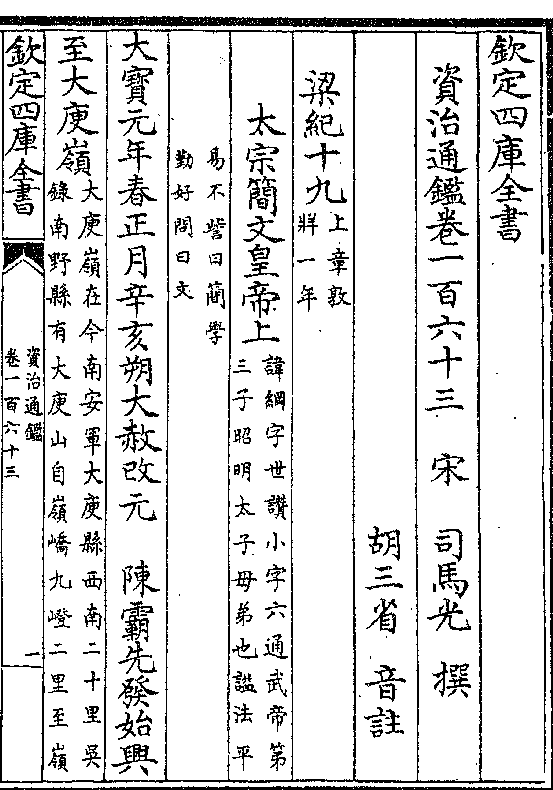 欽定四庫全書
資治通鑑卷一百六十三　宋　司馬光　撰
胡三省　音註
梁紀十九上章敦
牂一年
太宗簡文皇帝上諱綱字世讚小字六通武帝第
三子昭明太子母弟也諡法平
易不訾曰簡學
勤好問曰文
大寶元年春正月辛亥朔大赦改元　陳霸先發始興
至大庾嶺大庾嶺在今南安軍大庾縣西南二十里吳
錄南野縣有大庾山自嶺嶠九嶝二里至嶺
欽定四庫全書
資治通鑑
卷一百六十三
一